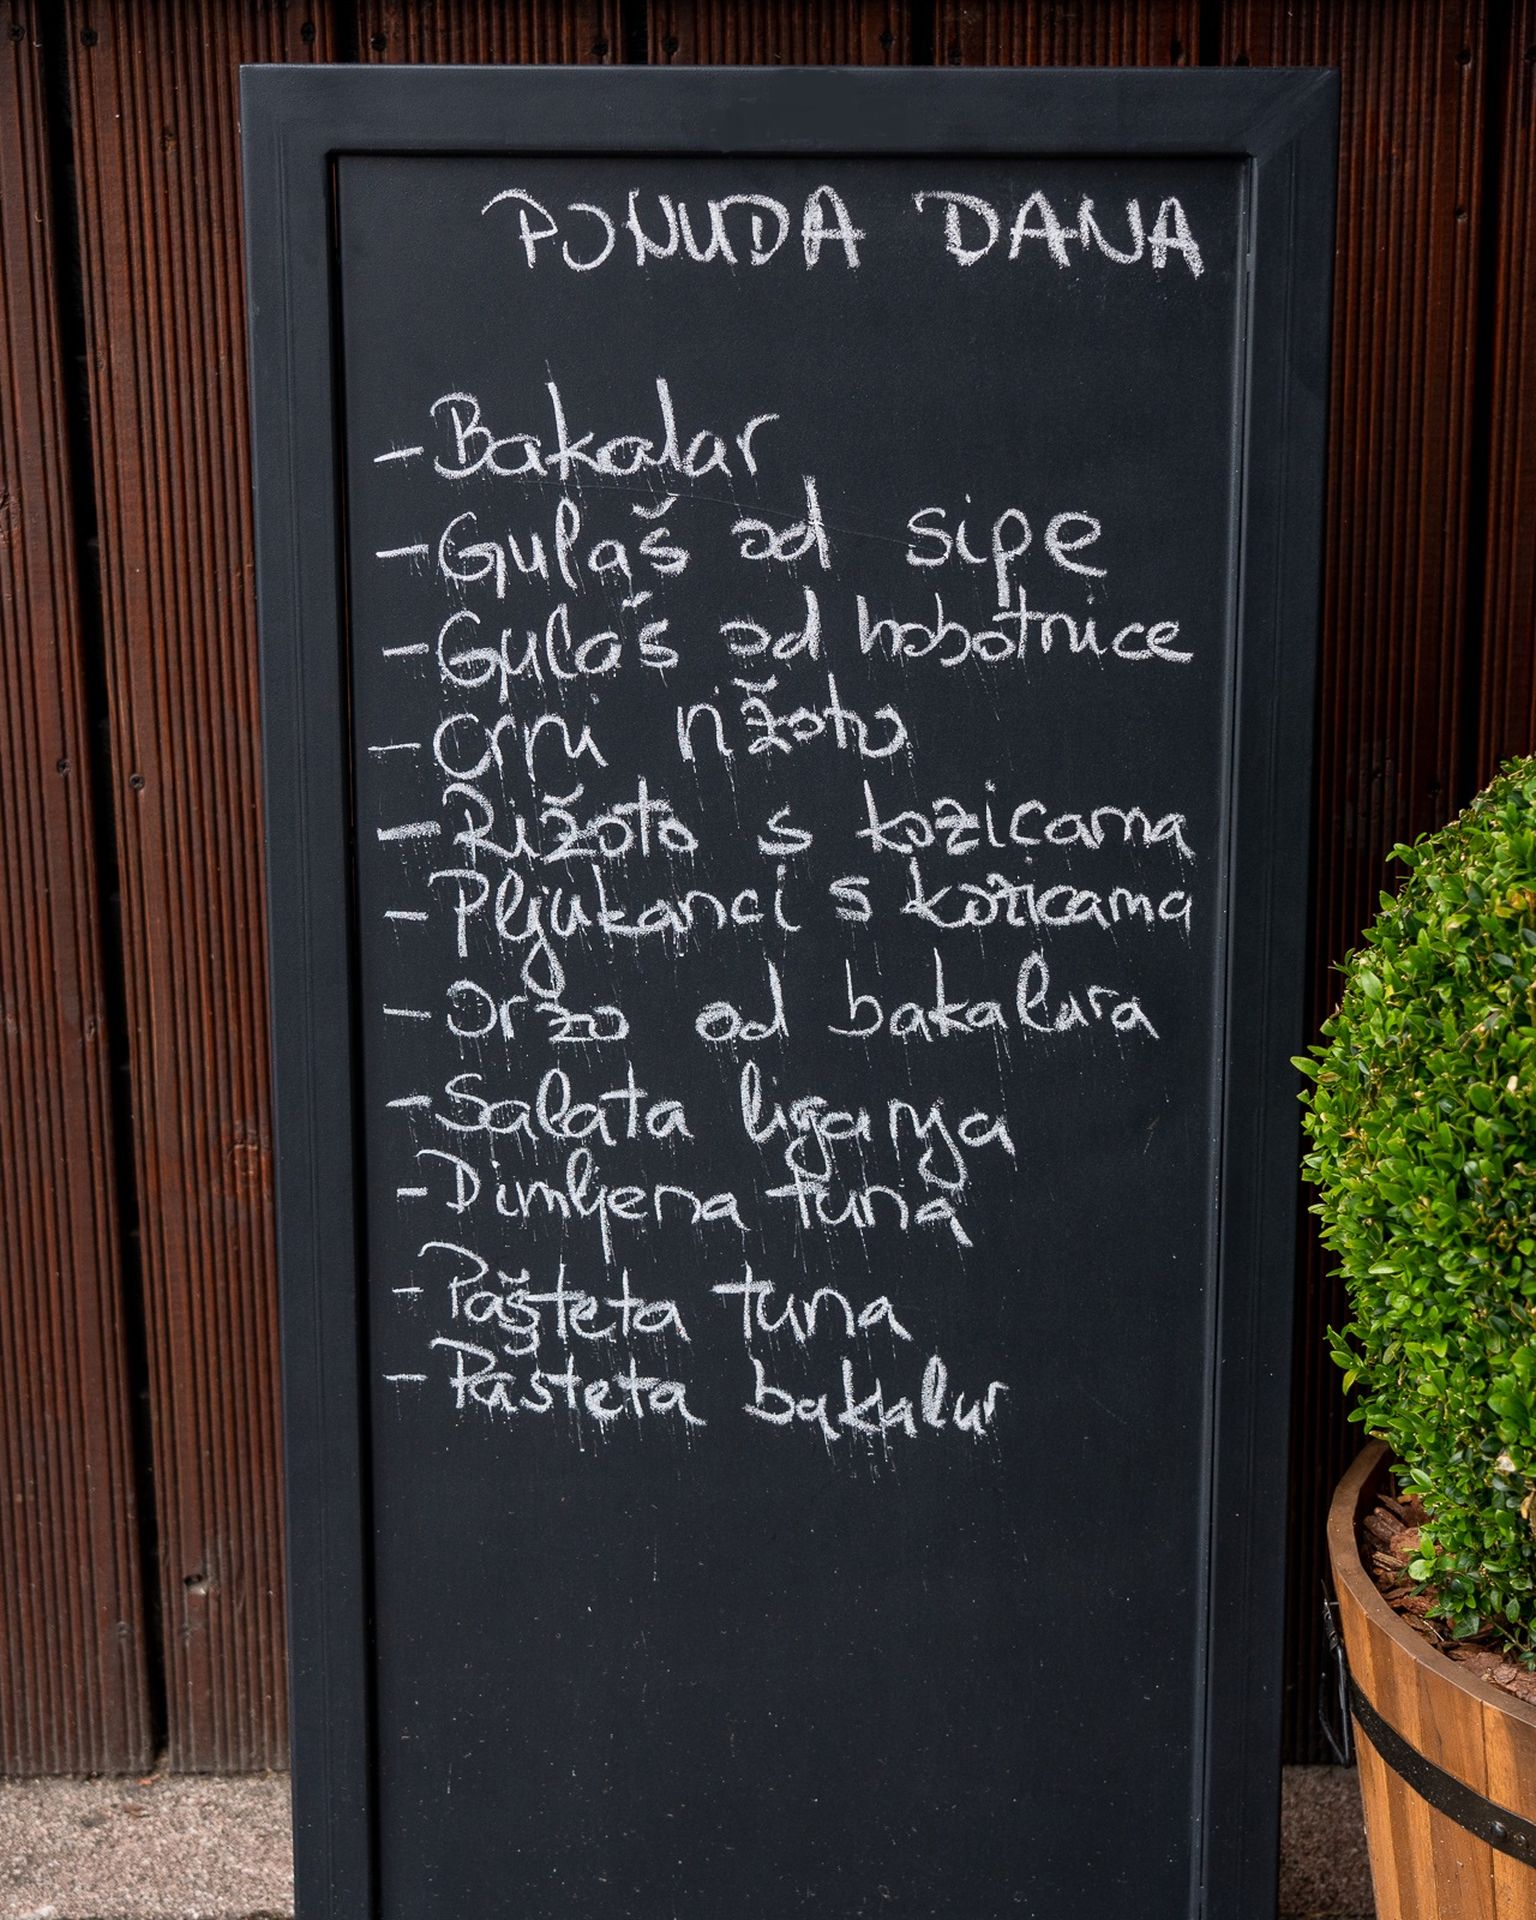 PONUDA DANA
- Bakalar
- Gulaš od sipe
- Gulaš od hobotnice
- Crni rižoto
- Rižoto s kozicama
- Pljukanci s kozicama
- Orzo od bakalara
- Salata liganja
- Dimljena tuna
- Pašteta tuna
- Pasteta bakalar